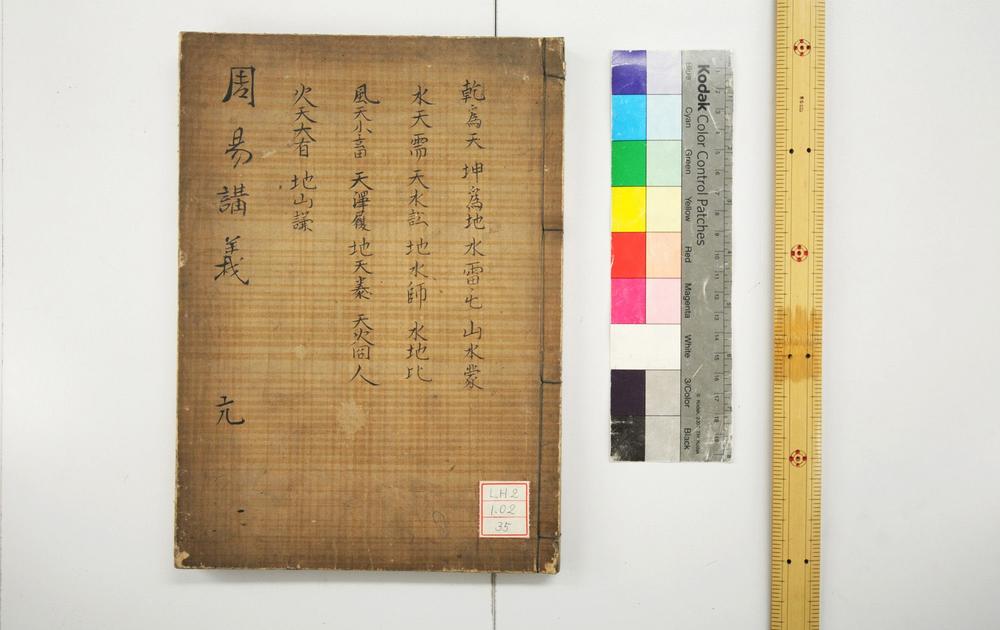 乾為天 坤為地 水雷屯 山水蒙
水天需 天水訟 地水師 水地比
風天小畜 天澤履 地天泰 天火同人
火天大有 地山謙
周易講義 元
L.H2
1.02
35
Kodak Color Control Patches
Blue
Cyan
Green
Yellow
Red
Magenta
White
3/Color
Black